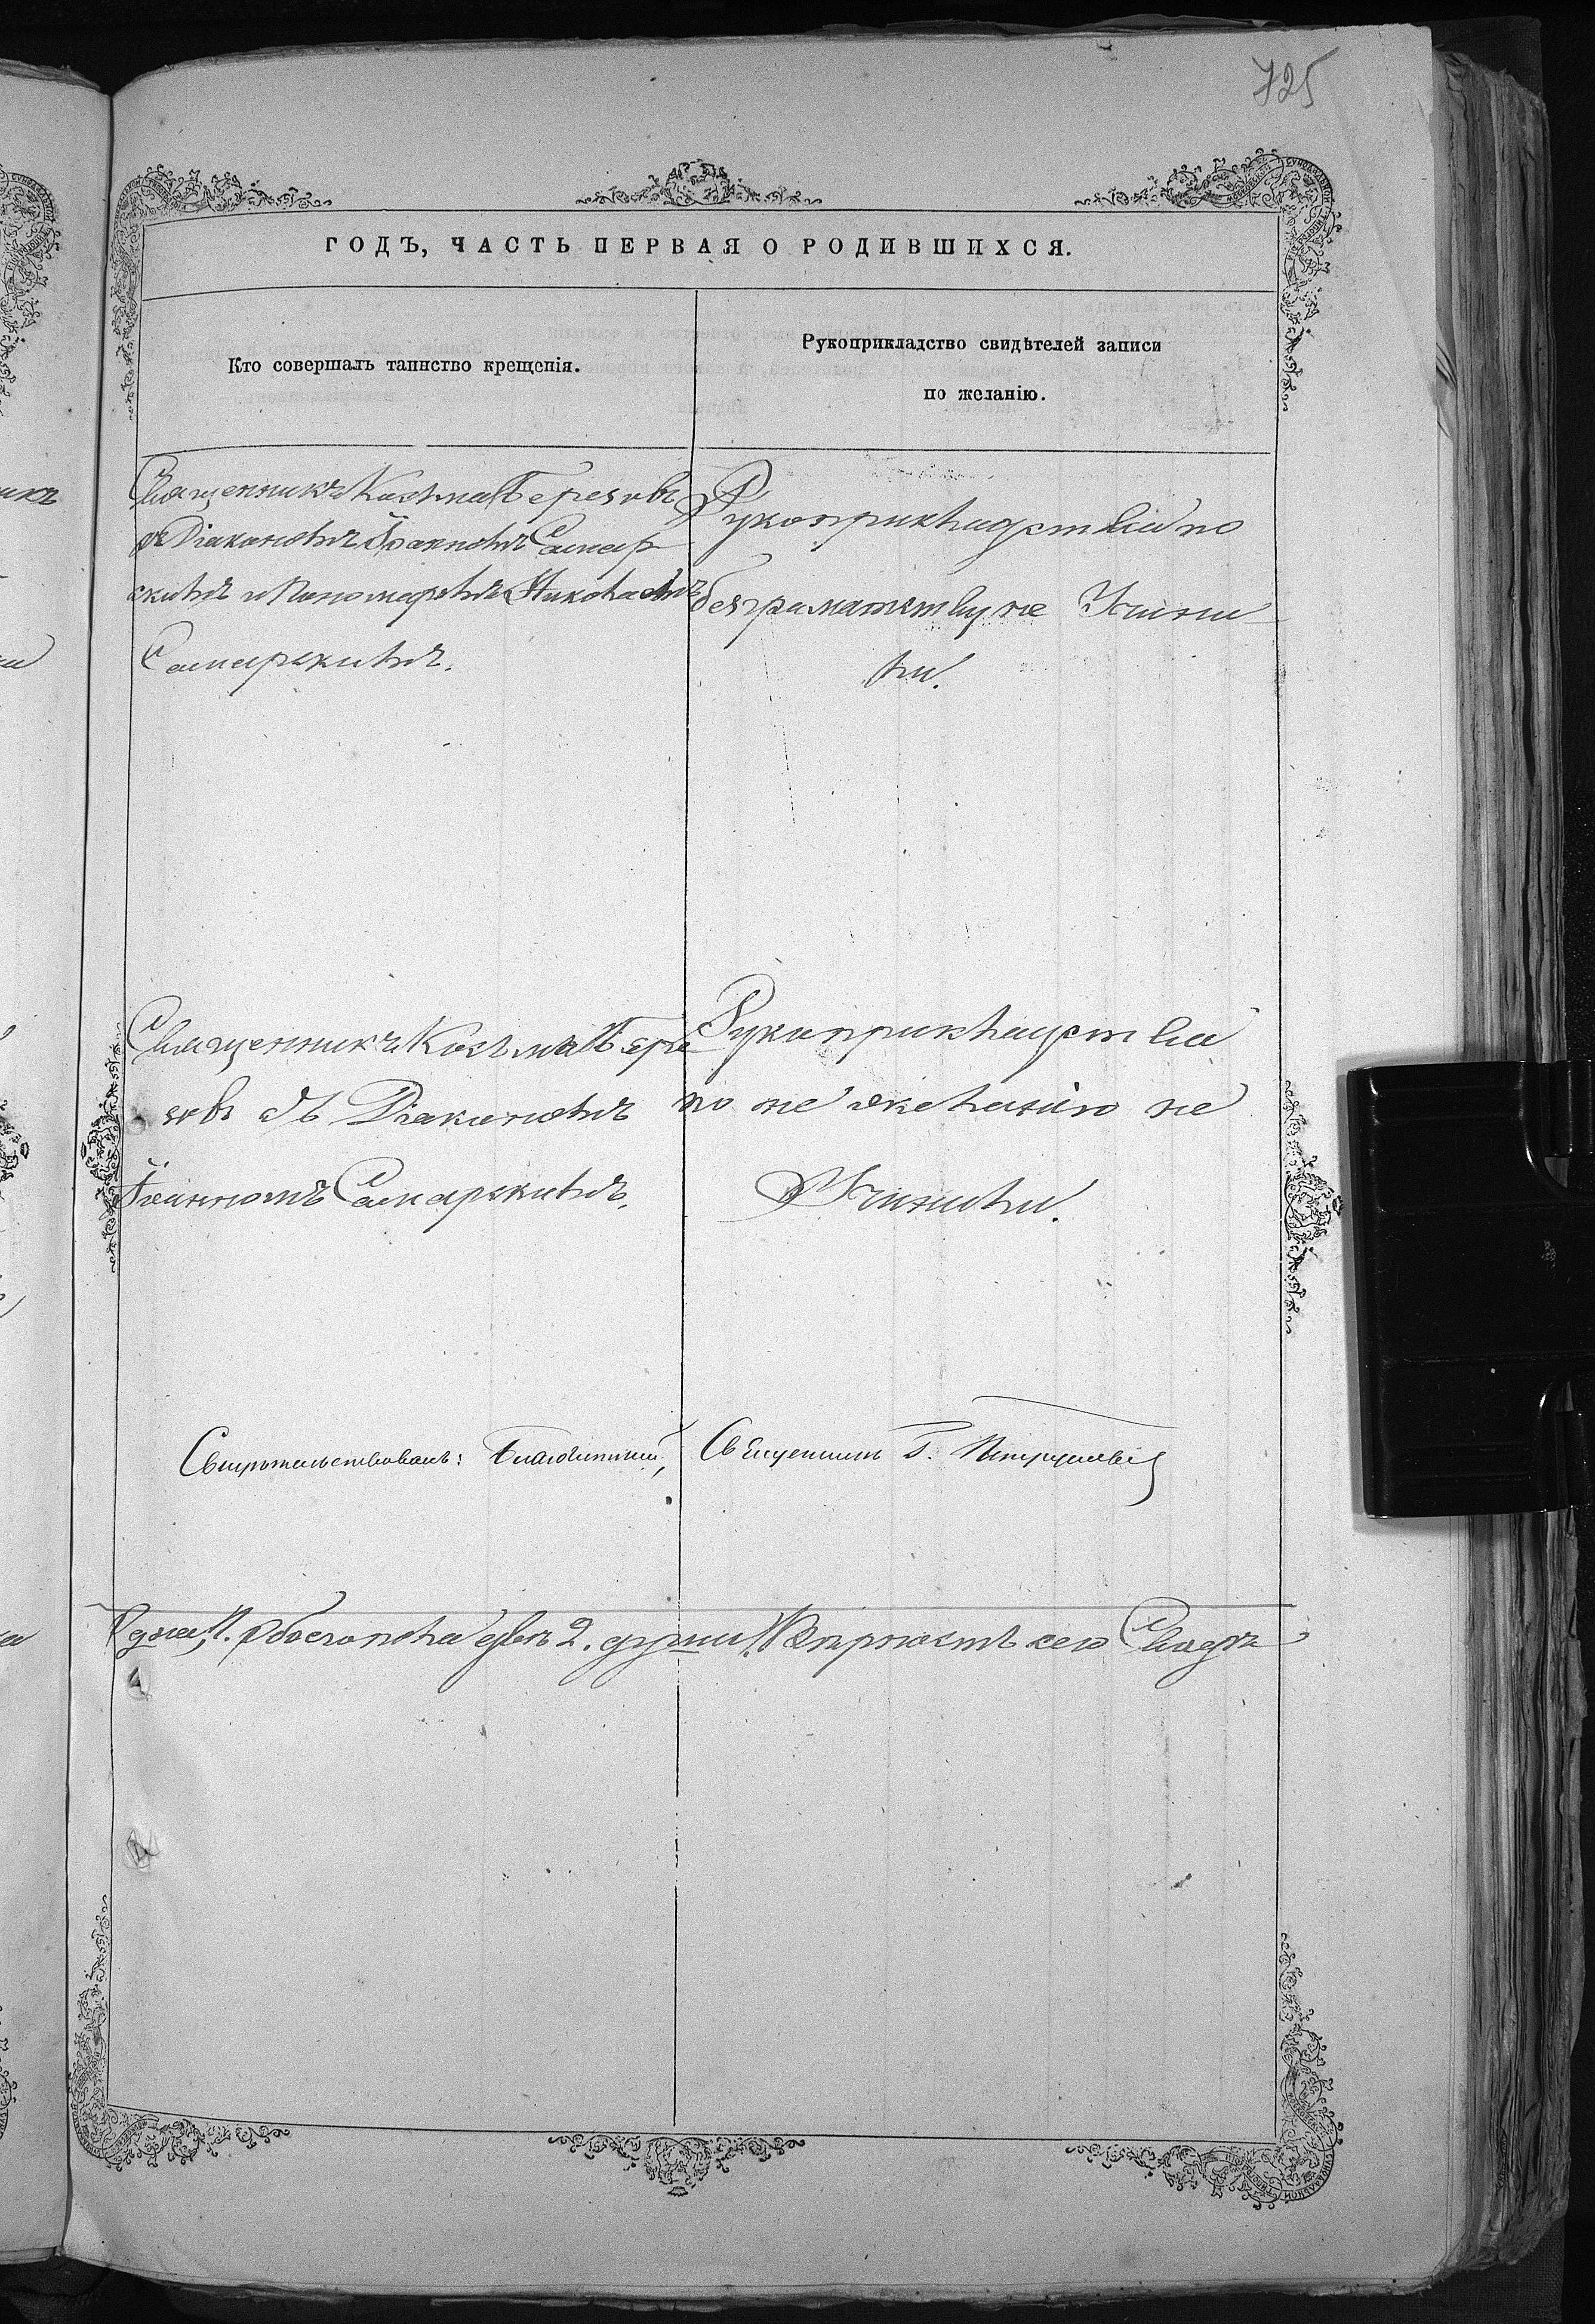 725
ГОДЪ, ЧАСТЬ ПЕРВАЯ О РОДИВШИХСЯ.
Кто совершалъ таинство крещенія.
Рукоприкладство свидѣтелей записи
по желанію.
Священникъ Козьма Березовъ
съ Діакономъ Іоанномъ Самар
скимъ и Пономаремъ Николаемъ
Самарскимъ.
Рукоприкладства по
безграматству не Учини
ли.
Священникъ Козьма Бере
зовъ съ Діакономъ
Іоанномъ Самарскимъ.
Рукоприкладства
по не желанію не
Учинили.
Свидѣтельствовалъ: Благочинный, Священникъ
одна, обоего пола двѣ 2. души. Вѣрность сего